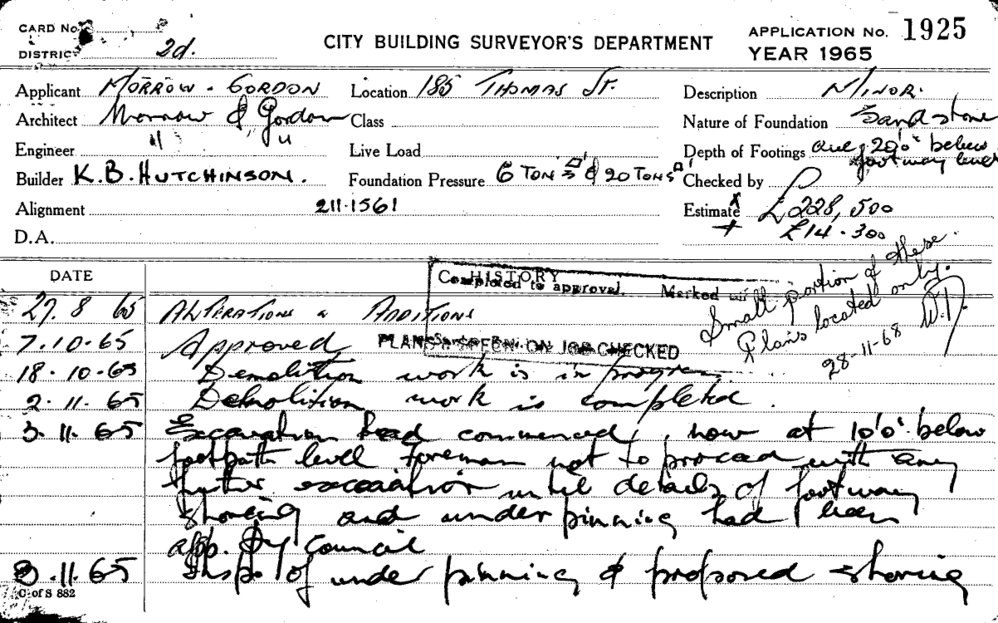 CARD No.
DISTRICT 2d.
CITY BUILDING SURVEYOR'S DEPARTMENT
APPLICATION No. 1925
YEAR 1965
Applicant MORROW - GORDON Location 185 THOMAS ST. Description MINOR.
Architect Morrow & Gordon Class Nature of Foundation Sandstone
Engineer " " Live Load Depth of Footings 20'0" below footway level
Builder K.B. HUTCHINSON. Foundation Pressure 6 TON & 20 TONS Checked by
Alignment 211.1561 Estimate £228,500
D.A. £14.300
DATE HISTORY
Completed to approval. Marked
Small portion of these
Plans located only.
28-11-68
27.8 65 ALTERATIONS & ADDITIONS
7.10.65 Approved
PLANS & SPECN. ON JOB CHECKED
18.10.65 Demolition work is in progress
2.11.65 Demolition work is completed.
3.11.65 Excavation had commenced, now at 10'0" below
footpath level foreman not to proceed with any
further excavation until details of footway
shoring and underpinning had been
app. by Council
8.11.65 Insp. of underpinning & proposed shoring
C of S 882